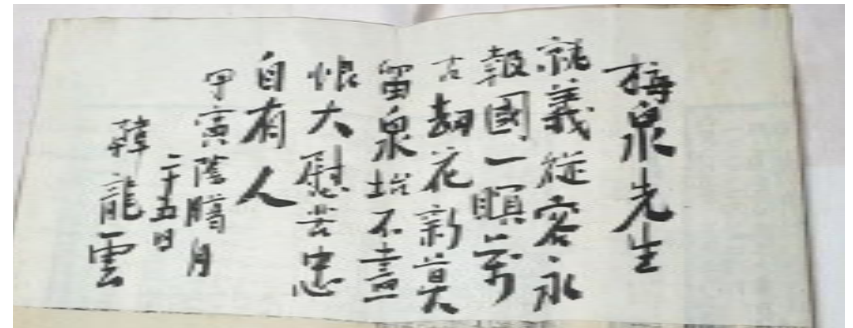 梅泉先生
就義從容永
報國一瞑萬
古劫花新莫
留泉坮不盡
恨大慰苦忠
自有人
甲寅陰臈月
二十五日
韓龍雲